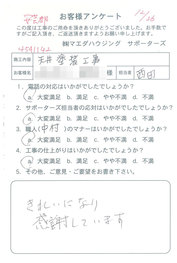 安芸郡
12/26
お客様アンケート
この度は工事のご用命を頂きありがとうございました。お手数
ですがご記入頂き、ご返送頂きますようお願い申し上げます。
㈱マエダハウジング サポーターズ
施工内容 塗装工事
お客様名 様 担当者 西田
1. 電話の対応はいかがでしたでしょうか?
a. 大変満足 b. 満足 c. やや不満 d. 不満
2. サポーターズ担当者の対応はいかがでしたでしょうか?
a. 大変満足 b. 満足 c. やや不満 d. 不満
3. 職人(中村)のマナーはいかがでしたでしょうか?
a. 大変満足 b. 満足 c. やや不満 d. 不満
4. 工事の仕上がりはいかがでしたでしょうか?
a. 大変満足 b. 満足 c. やや不満 d. 不満
5. その他、ご意見・ご要望をお書き下さい。
きれいになり
感謝しています